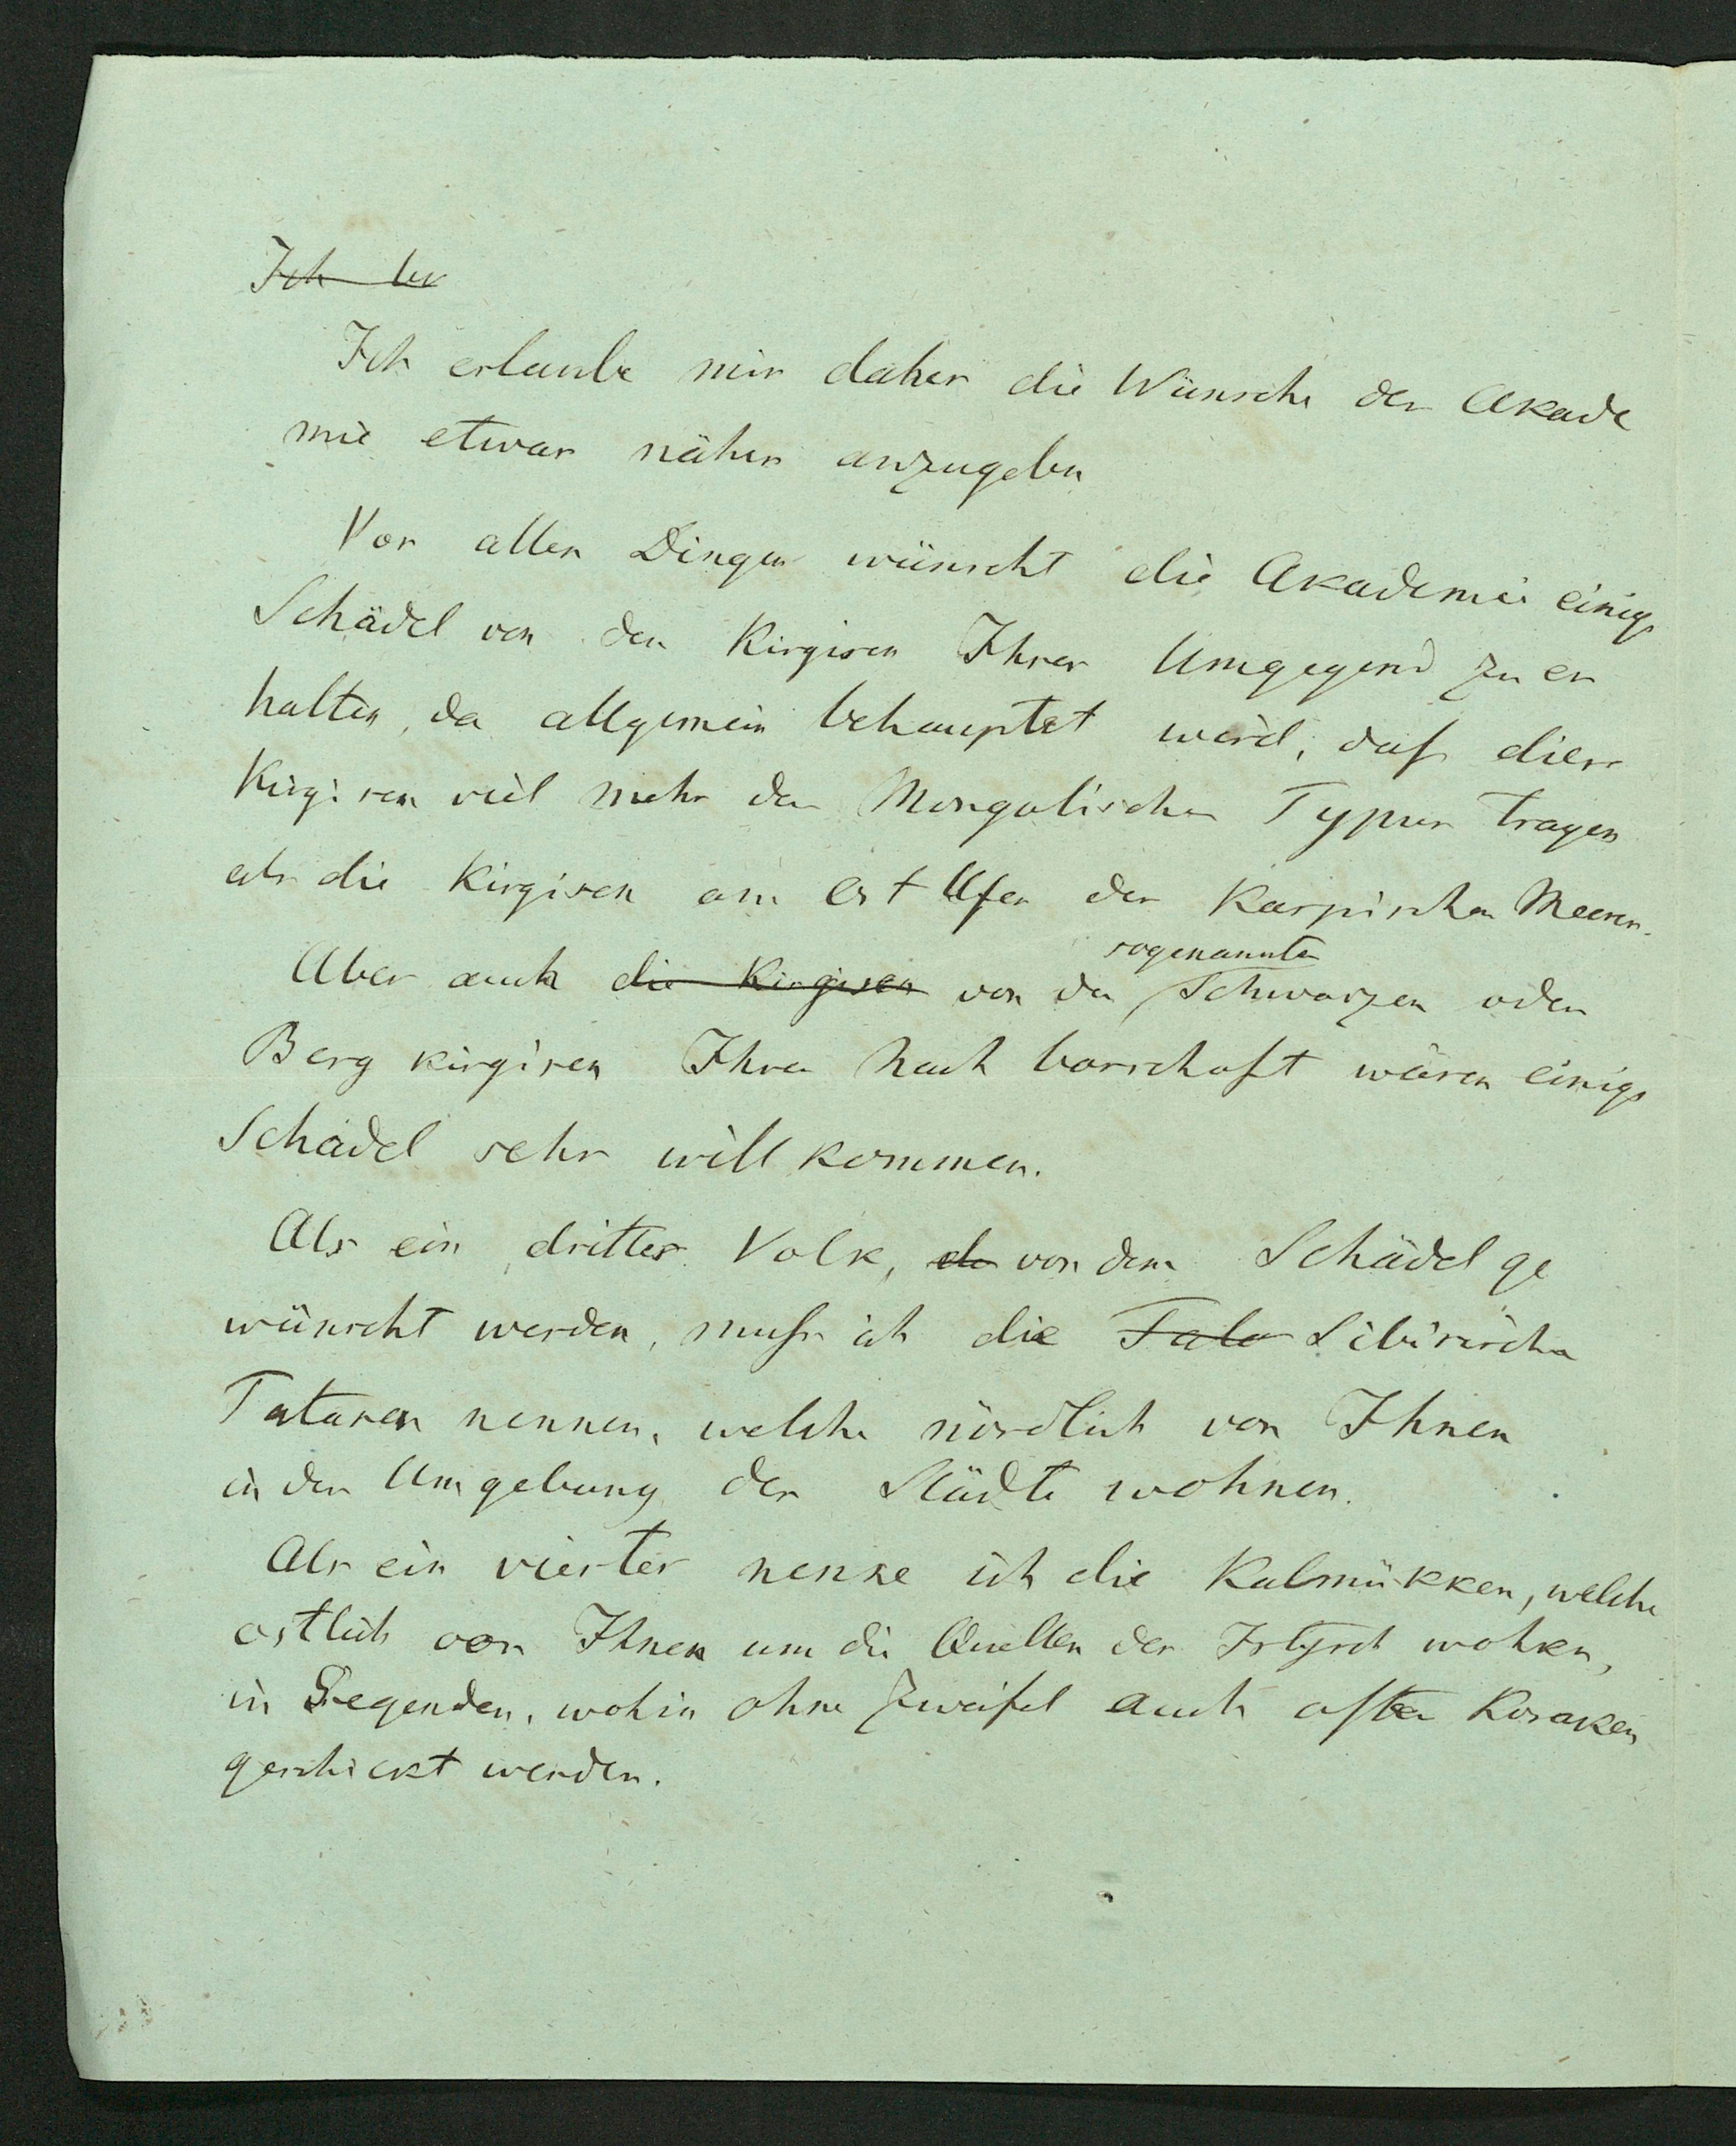 Ich be
Ich erlaube mir daher die Wünsche der Akade
mie etwas näher anzugeben
Vor allen Dingen wünscht die Akademie einige
Schädel von den Kirgisen Ihrer Umgegend zu er
halten, da allgemein behauptet wird, daß diese
Kirgisen viel mehr den Mongolischen Typus tragen
als die Kirgisen am Ost Ufer des Kaspischen Meeres.
sogenannten
Aber auch die Kirgisen von den Schwarzen oder
Berg kirgisen Ihrer Nach barschaft wären einige
Schädel sehr will kommen.
Als ein drittes Volk, de von dem Schädel ge
wünscht werden, muß ich die Tata Sibirischen
Tataren nennen, welche nördlich von Ihnen
in der Umgebung der Städte wohnen.
Als ein viertes nenne ich die Kalmükken, welche
östlich von Ihnen um die Quellen des Irtysch wohnen,
in Gegenden, wohin ohne Zweifel auch öfter Kosaken
geschickt werden.